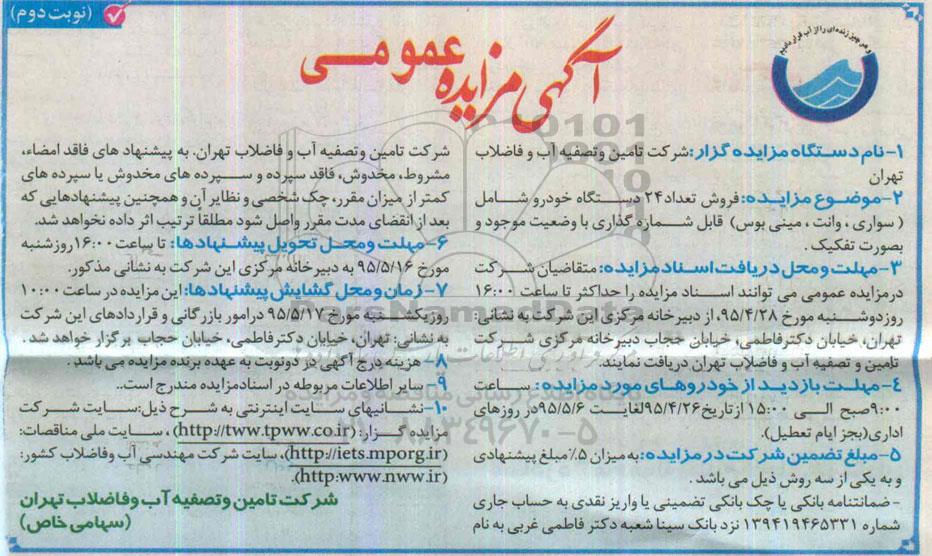 (نوبت دوم)
و هر چیز زنده‌ای را از آب قرار دادیم
آگهی مزایده عمومی
۱- نام دستگاه مزایده گزار: شرکت تامین وتصفیه آب و فاضلاب
تهران
۲- موضوع مزایده: فروش تعداد ۲۴ دستگاه خودرو شامل
( سواری ، وانت ، مینی بوس) قابل شماره گذاری با وضعیت موجود و
بصورت تفکیک .
۳- مهلت و محل دریافت اسناد مزایده: متقاضیان شرکت
درمزایده عمومی می توانند اسناد مزایده را حداکثر تا ساعت ۱۶:۰۰
روز دوشنبه مورخ ۹۵/۴/۲۸، از دبیرخانه مرکزی این شرکت به نشانی:
تهران، خیابان دکترفاطمی، خیابان حجاب دبیرخانه مرکزی شرکت
تامین و تصفیه آب و فاضلاب تهران دریافت نمایند.
۴- مهلت بازدید از خودروهای مورد مزایده: ساعت
۹:۰۰صبح الی ۱۵:۰۰ ازتاریخ ۹۵/۴/۲۶لغایت ۹۵/۵/۶در روزهای
اداری(بجز ایام تعطیل).
۵- مبلغ تضمین شرکت در مزایده: به میزان ۵٪ مبلغ پیشنهادی
و به یکی از سه روش ذیل می باشد .
- ضمانتنامه بانکی یا چک بانکی تضمینی یا واریز نقدی به حساب جاری
شماره ۱۳۹۴۱۹۴۶۵۳۳۱ نزد بانک سینا شعبه دکتر فاطمی غربی به نام
شرکت تامین وتصفیه آب و فاضلاب تهران. به پیشنهاد های فاقد امضاء،
مشروط، مخدوش، فاقد سپرده و سپرده های مخدوش یا سپرده های
کمتر از میزان مقرر، چک شخصی و نظایر آن و همچنین پیشنهادهایی که
بعد از انقضای مدت مقرر واصل شود مطلقا ترتیب اثر داده نخواهد شد.
۶- مهلت و محل تحویل پیشنهادها: تا ساعت ۱۶:۰۰ روزشنبه
مورخ ۹۵/۵/۱۶ به دبیرخانه مرکزی این شرکت به نشانی مذکور.
۷- زمان و محل گشایش پیشنهادها: این مزایده در ساعت ۱۰:۰۰
روزیکشنبه مورخ ۹۵/۵/۱۷ درامور بازرگانی و قراردادهای این شرکت
به نشانی: تهران، خیابان دکترفاطمی، خیابان حجاب برگزار خواهد شد .
۸- هزینه درج آگهی در دونوبت به عهده برنده مزایده می باشد .
۹- سایر اطلاعات مربوطه در اسنادمزایده مندرج است..
۱۰- نشانیهای سایت اینترنتی به شرح ذیل:سایت شرکت
مزایده گزار: (http://tww.tpww.co.ir) ، سایت ملی مناقصات:
(http://iets.mporg.ir)، سایت شرکت مهندسی آب وفاضلاب کشور:
(http:www.nww.ir).
شرکت تامین وتصفیه آب وفاضلاب تهران
(سهامی خاص)
ParsNamadData
پایگاه اطلاع رسانی مناقصه و مزایده
۸۸۳۴۹۶۷۰-۵